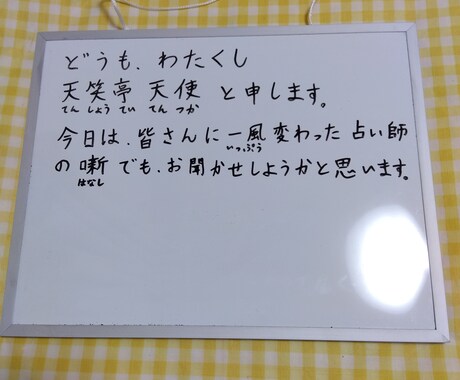 どうも、わたくし
天笑亭 天使 と申します。
てん しょう てい てん つか
今日は、皆さんに一風変わった占い師
いっぷう
の噺でも、お聞かせしようかと思います。
はなし